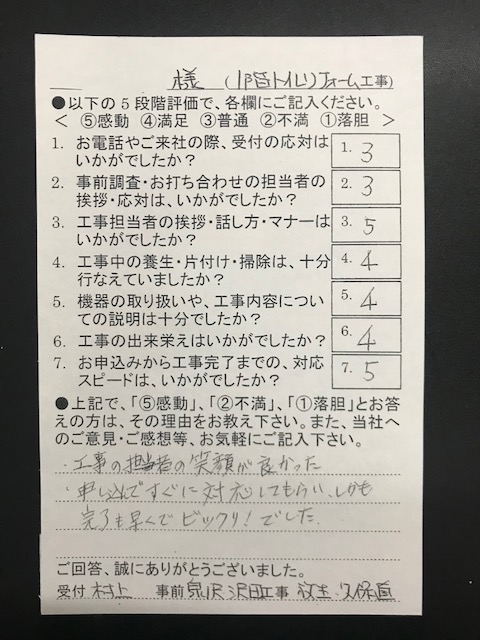 様 (1階トイレリフォーム工事)
●以下の5段階評価で、各欄にご記入ください。
< ⑤感動 ④満足 ③普通 ②不満 ①落胆 >
1. お電話やご来社の際、受付の応対は 1. 3
いかがでしたか？
2. 事前調査・お打ち合わせの担当者の 2. 3
挨拶・応対は、いかがでしたか？
3. 工事担当者の挨拶・話し方・マナーは 3. 5
いかがでしたか？
4. 工事中の養生・片付け・掃除は、十分 4. 4
行なえていましたか？
5. 機器の取り扱いや、工事内容につい 5. 4
ての説明は十分でしたか？
6. 工事の出来栄えはいかがでしたか？ 6. 4
7. お申込みから工事完了までの、対応 7. 5
スピードは、いかがでしたか？
●上記で、「⑤感動」、「②不満」、「①落胆」とお答
えの方は、その理由をお教え下さい。また、当社へ
のご意見・ご感想等、お気軽にご記入下さい。
・工事の担当者の笑顔が良かった
・申し込んですぐに対応してもらい、しかも
完了も早くてビックリ！でした.
ご回答、誠にありがとうございました。
受付 村上 事前 沢田 工事 久保